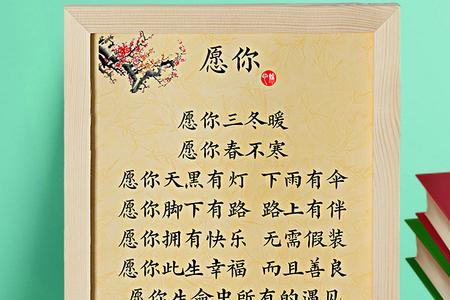 愿你
愿你三冬暖
愿你春不寒
愿你天黑有灯 下雨有伞
愿你脚下有路 路上有伴
愿你拥有快乐 无需假装
愿你此生幸福 而且善良
愿你生命中所有的遇见